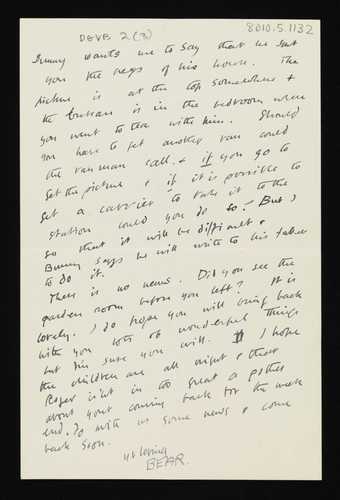 DEVB 2(3)
8010.5.1132
Bunny wants me to say that he sent
you the keys of his house. The
picture is at the top somewhere &
the bureau is in the bedroom where
you went to tea with him. Should
you have to get another van could
the van man call & if you go to
get the picture & if it is possible to
get a carrier to take it to the
station could you do so? But I
so that it will be difficult &
Bunny says he will write to his father
to do it.
There is no news. Did you see the
garden room before you left? It is
lovely. I do hope you will bring back
with you lots of wonderful things
but I'm sure you will. I hope
the children are all right & that
Roger isn't in too great a pother
about your coming back for the week
end. Do write us some news & come
back soon.
yr loving
BEAR.